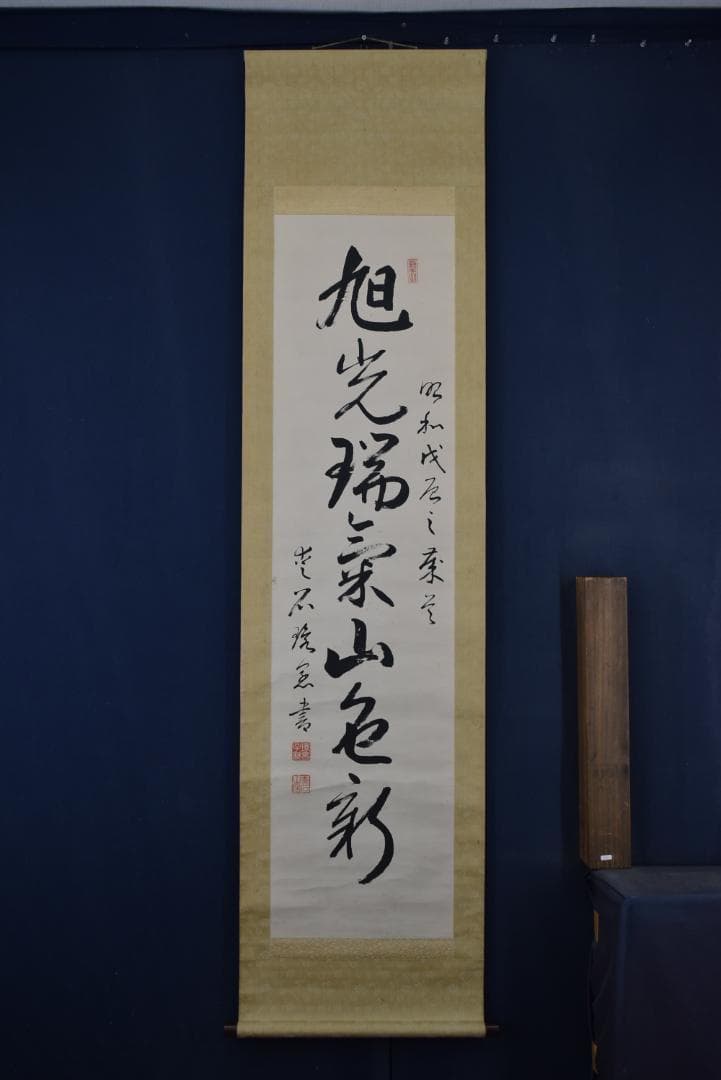 昭和戊辰之歳首
旭光瑞氣山色新
石
書